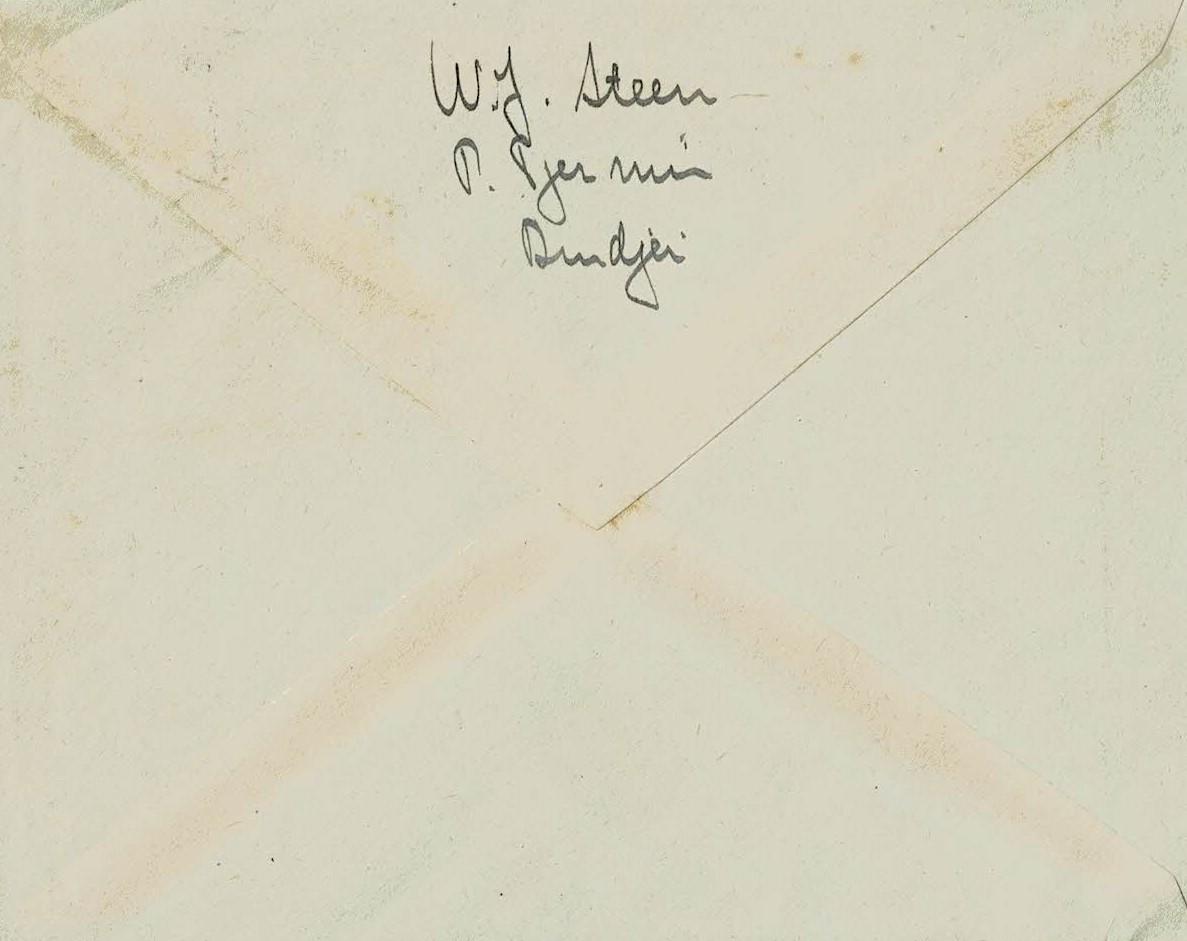 W.J. Steen
P. Tjermin
Bindjei